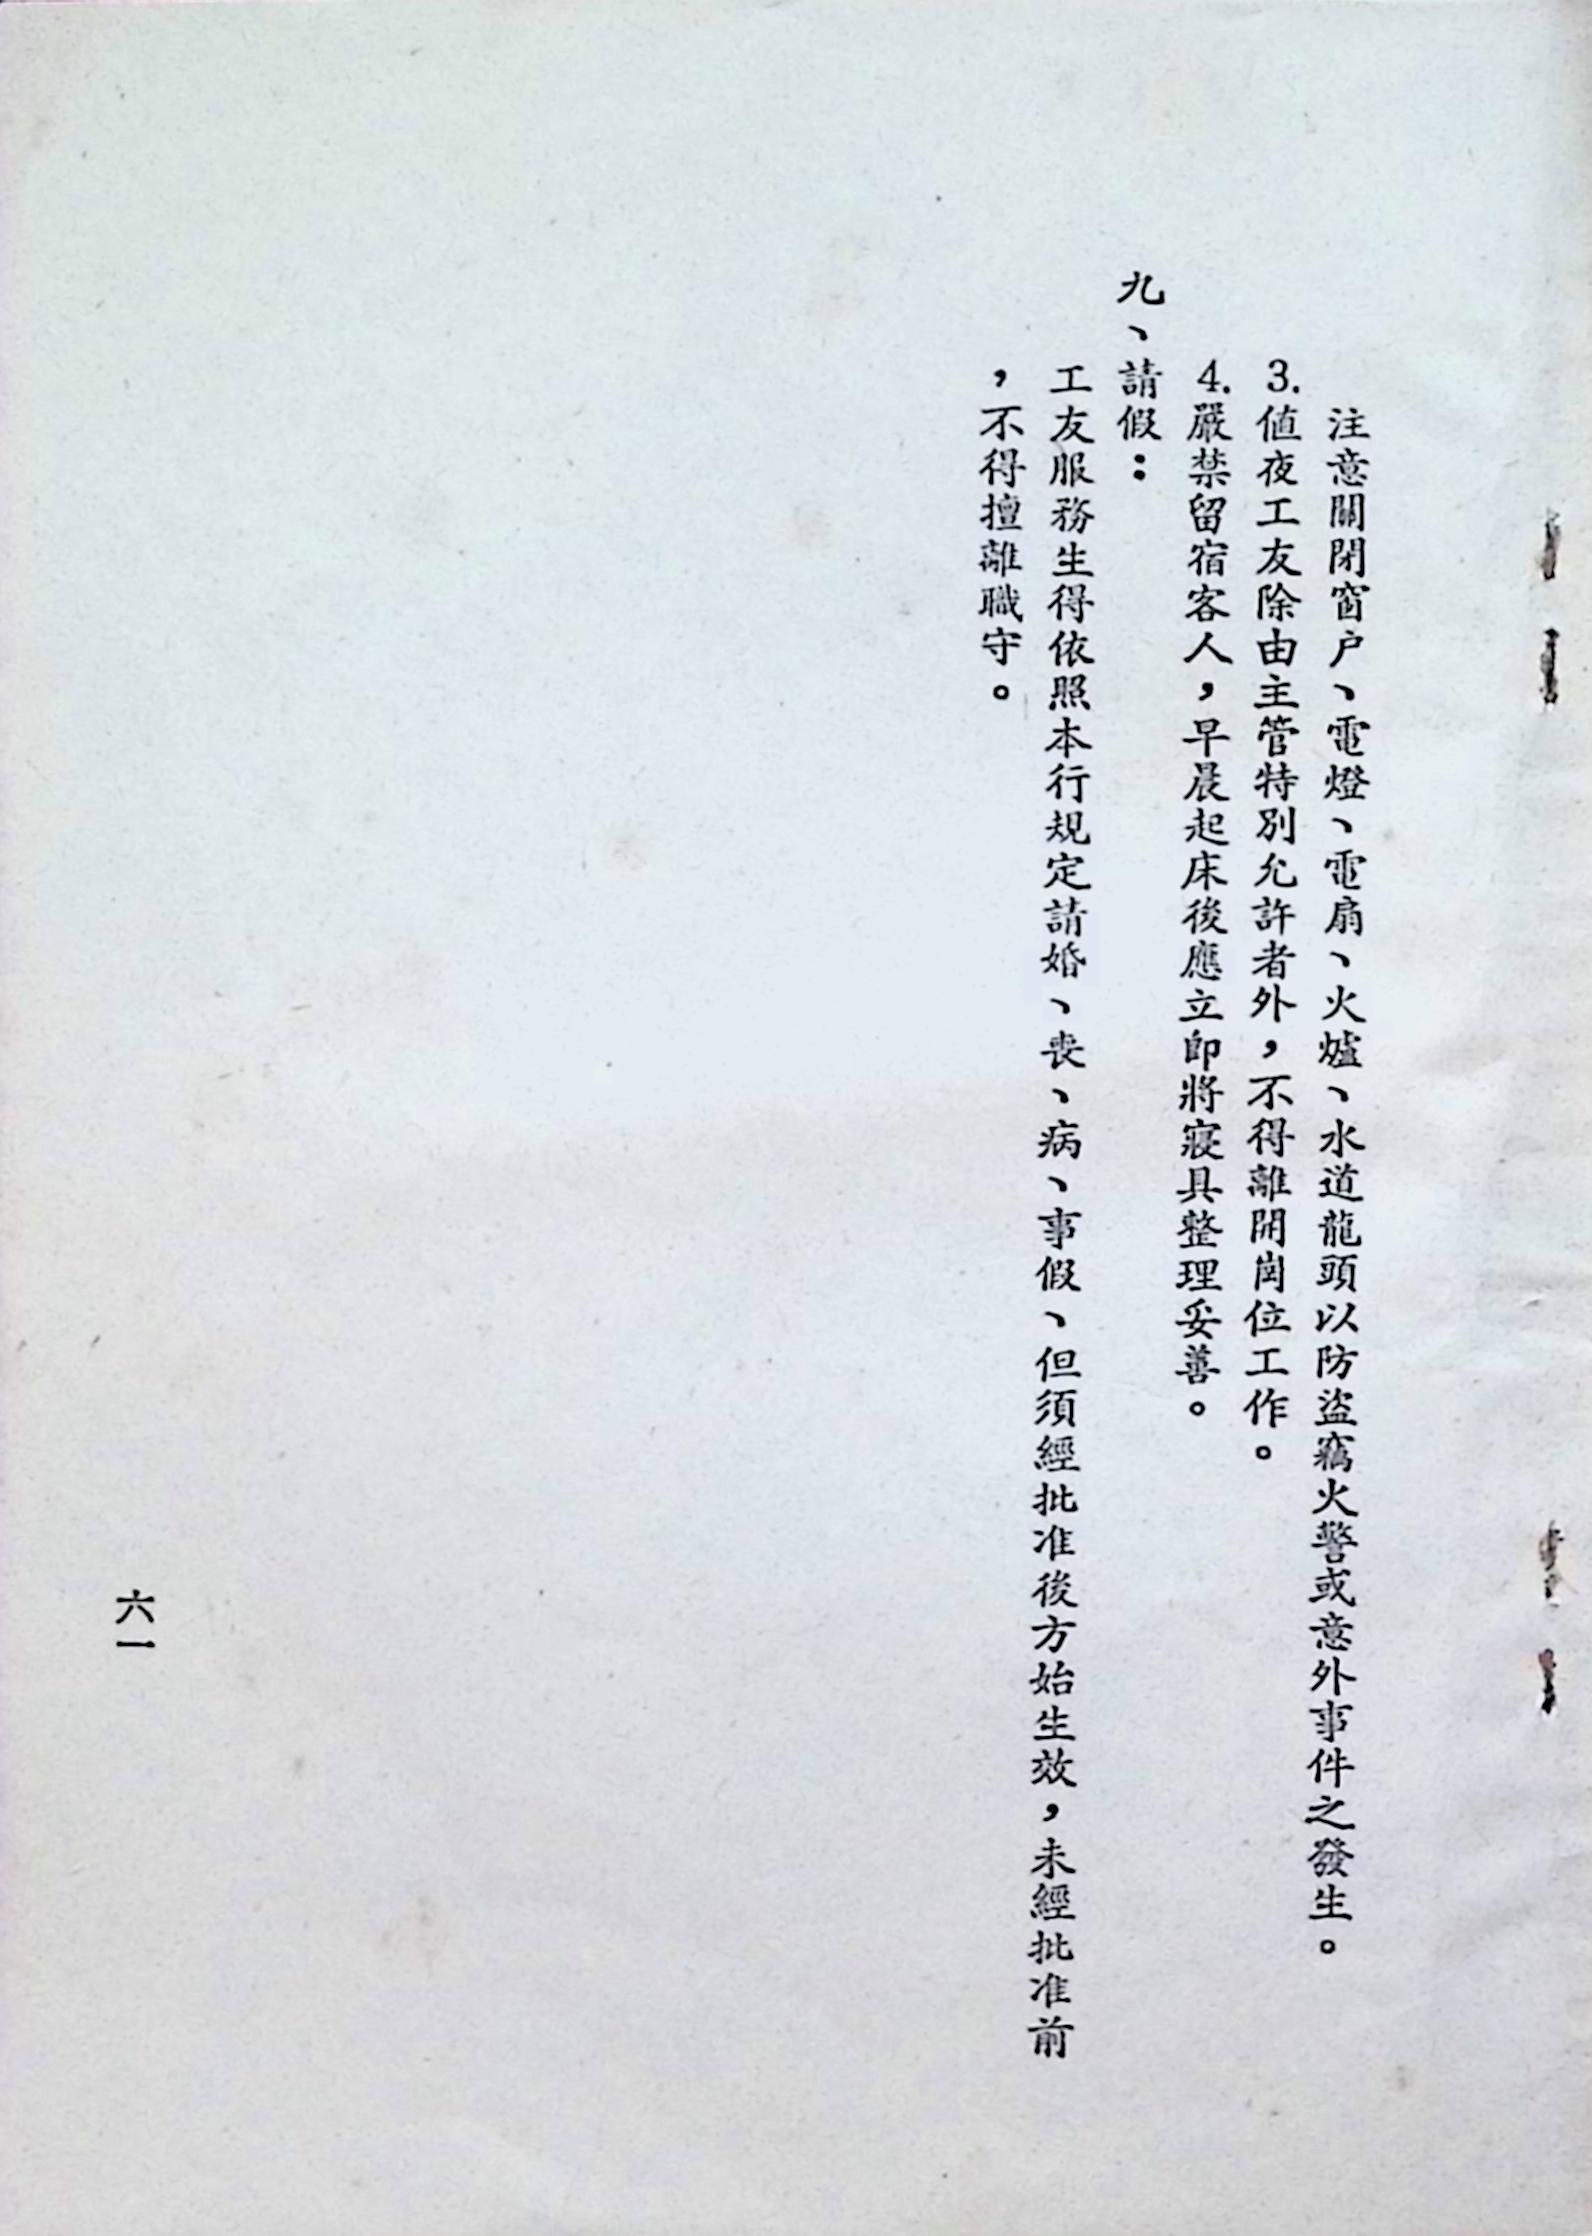 注意關閉窗户、電燈、電扇、火爐、水道龍頭以防盜竊火警或意外事件之發生。
3.值夜工友除由主管特別允許者外,不得離開崗位工作。
4.嚴禁留宿客人,早晨起床後應立即將寢具整理妥善。
九、請假：
工友服務生得依照本行規定請婚、喪、病、事假、但須經批准後方始生效,未經批准前
,不得擅離職守。
六一